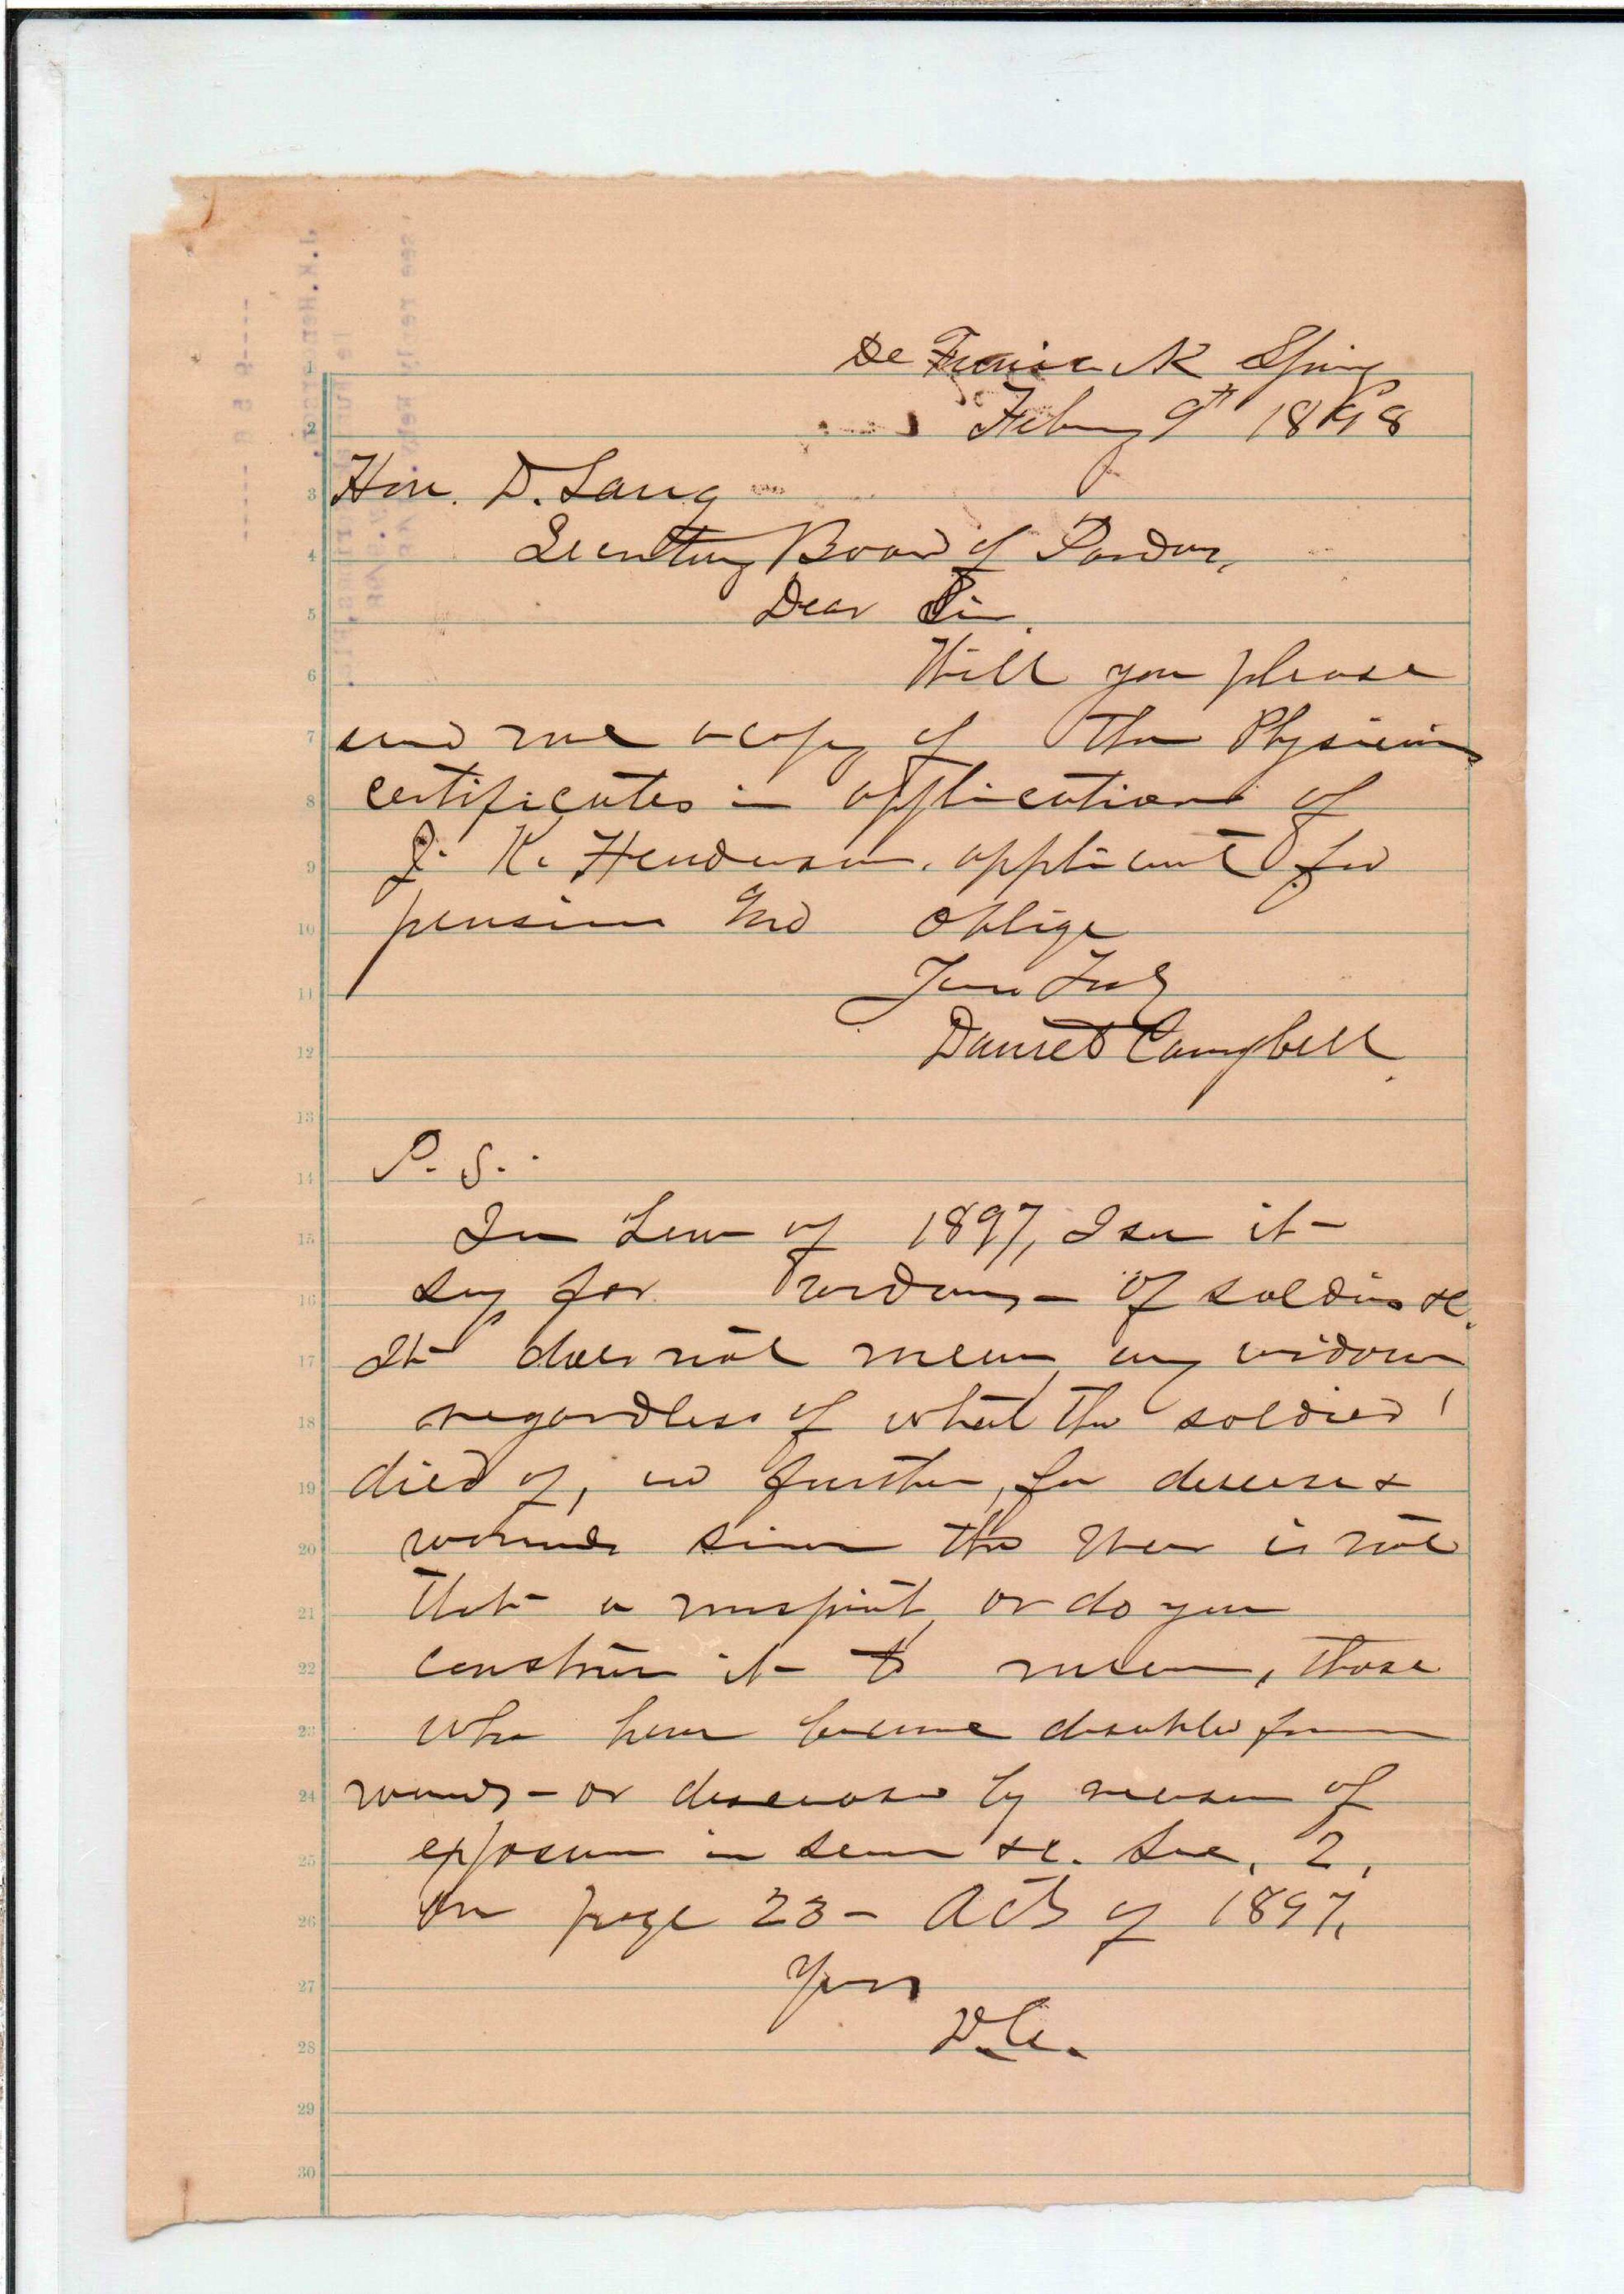 De Funiak Springs
Feby 9th 1898
Hon. D. Lang
Secretary Board of Pardons,
Dear Sir.
Will you please
send me a copy of the Physicians
certificates in application of
J. K. Henderson. applicant for
pension and oblige
Yours Truly
Daniel Campbell.
P. S.
In Law of 1897, I see it
say for widows of soldiers &c.
It does not mean any widow
regardless of what the soldier
died of, and further, for disease &
wounds since the War is not
that a misprint, or do you
construe it to mean, those
who have become disabled from
wounds - or disease by reason of
exposure in &c. Sec. 2,
On page 23 - Acts of 1897,
Yours
D.C.
1
2
3
4
5
6
7
8
9
10
11
12
13
14
15
16
17
18
19
20
21
22
23
24
25
26
27
28
29
30